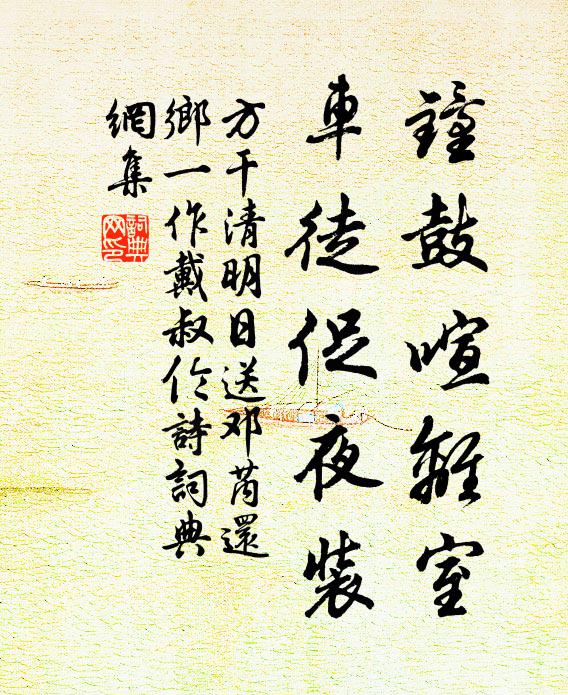 鐘鼓喧離室
車徒促夜裝
方干清明日送邓芮還
鄉一作戴叔伦詩詞典
網集
詞典網印